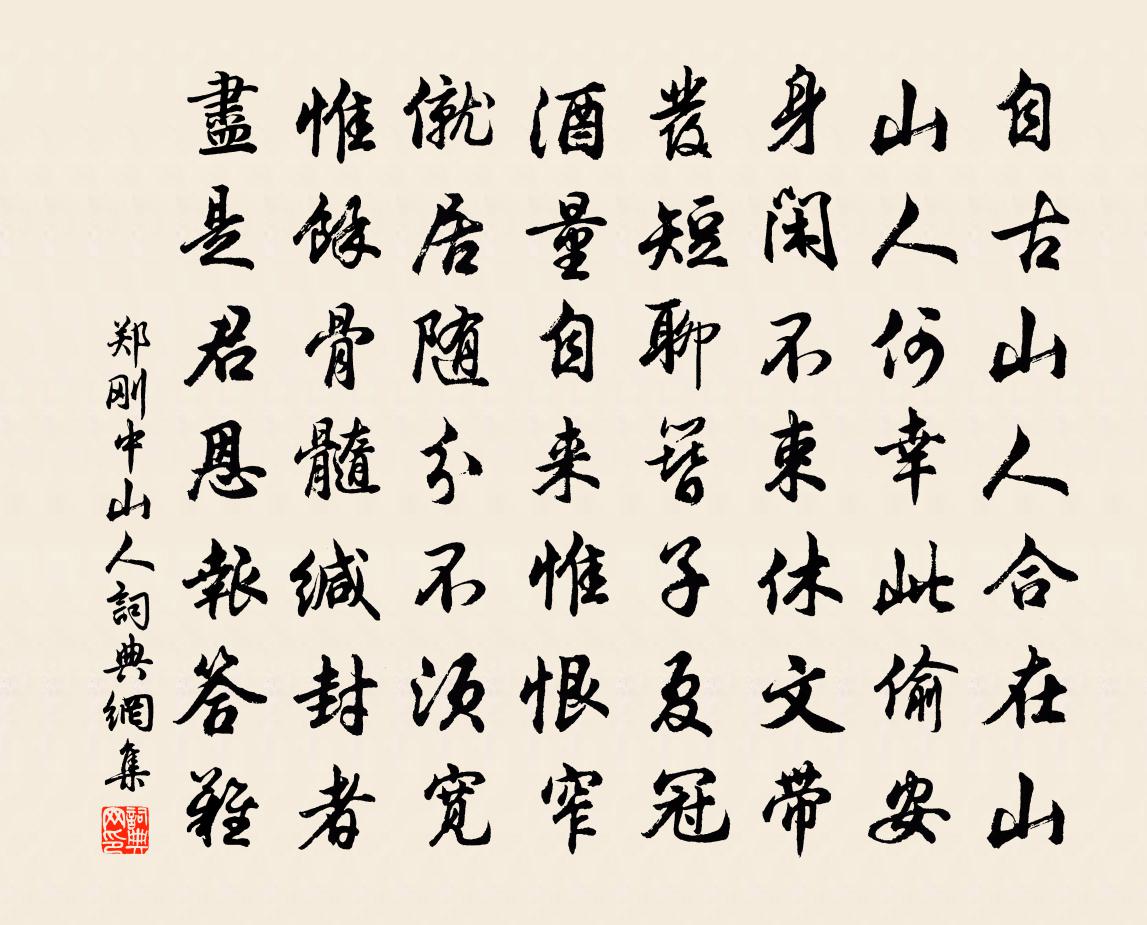 自古山人合在山
山人何幸此偷安
身閑不束休文带
發短聊簪子夏冠
酒量自来惟恨窄
僦居随分不須寬
惟餘骨髓緘封者
盡是君恩報答難
郑刚中山人詞典網集
詞典网印